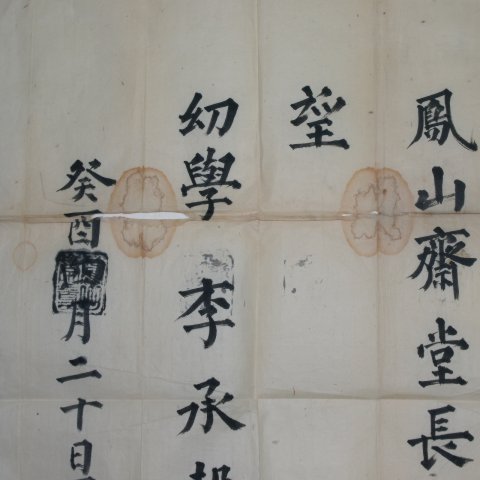 鳳山齋堂長
望
幼學 李承
癸酉 月二十日